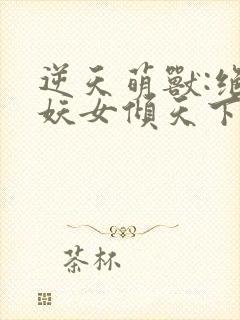 逆天萌獸:絕
妖女傾天下
茶杯